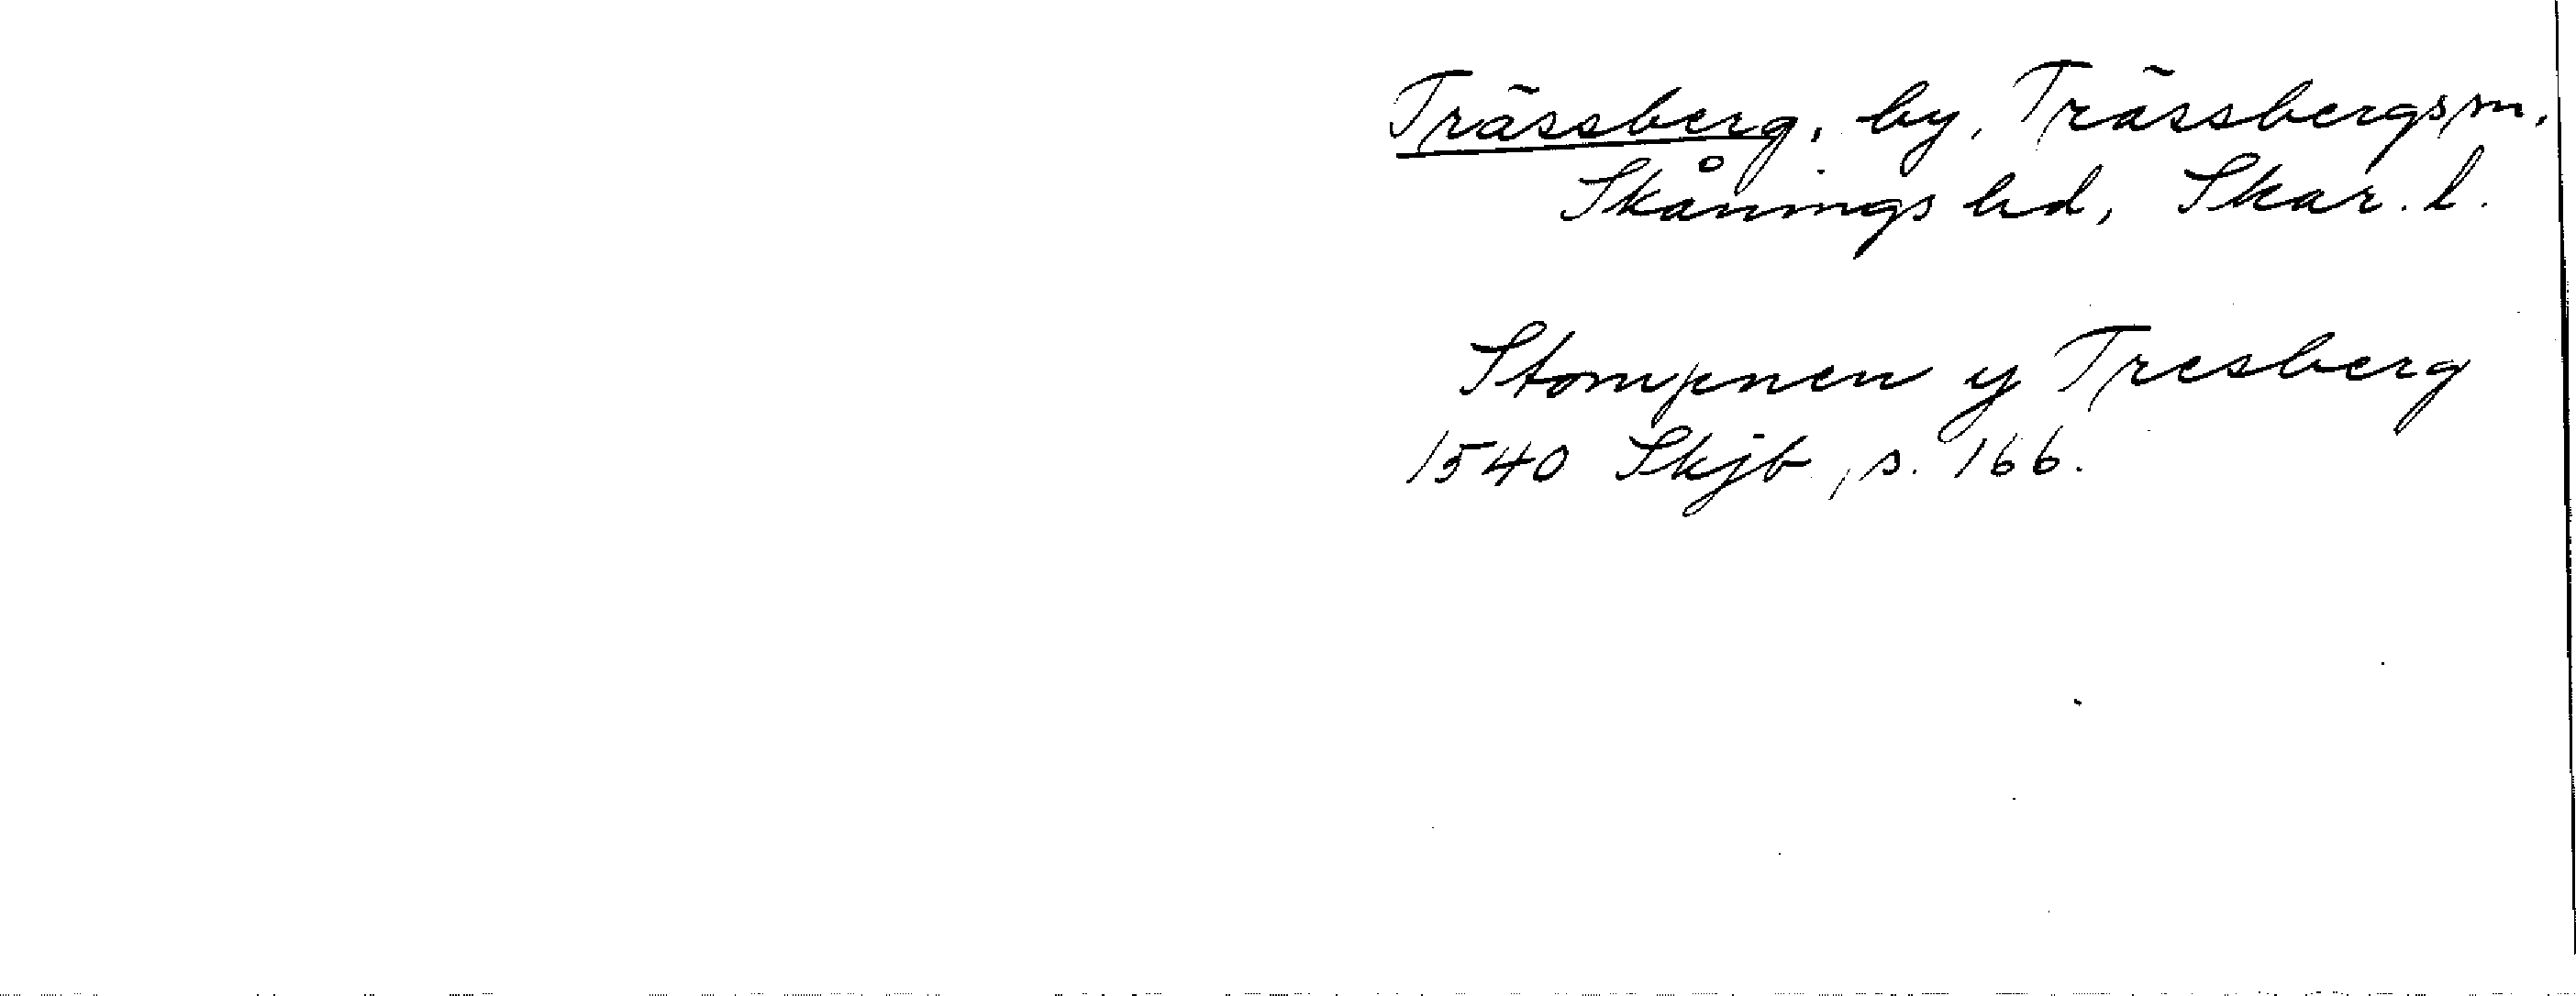 Trässberg, by, Trässbergs sn,
Skånings hd, Skar. l.
Stompnen y Tresberg
1540 Skjb, s. 166.